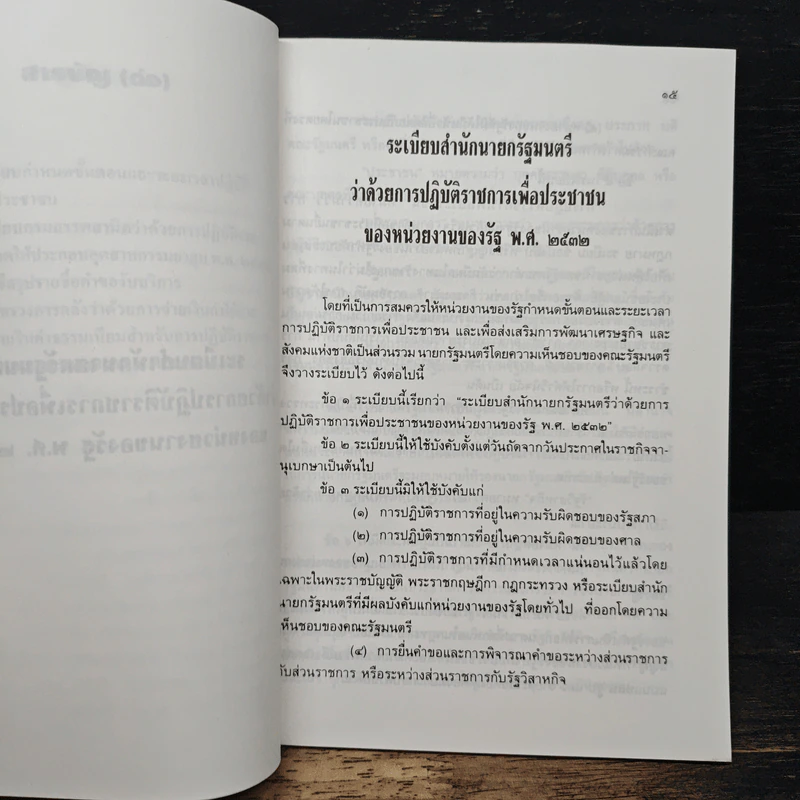 ๑๕
ระเบียบสำนักนายกรัฐมนตรี
ว่าด้วยการปฏิบัติราชการเพื่อประชาชน
ของหน่วยงานของรัฐ พ.ศ. ๒๕๓๒
โดยที่เป็นการสมควรให้หน่วยงานของรัฐกำหนดขั้นตอนและระยะเวลา
การปฏิบัติราชการเพื่อประชาชน และเพื่อส่งเสริมการพัฒนาเศรษฐกิจ และ
สังคมแห่งชาติเป็นส่วนรวม นายกรัฐมนตรีโดยความเห็นชอบของคณะรัฐมนตรี
จึงวางระเบียบไว้ ดังต่อไปนี้
ข้อ ๑ ระเบียบนี้เรียกว่า “ระเบียบสำนักนายกรัฐมนตรีว่าด้วยการ
ปฏิบัติราชการเพื่อประชาชนของหน่วยงานของรัฐ พ.ศ. ๒๕๓๒”
ข้อ ๒ ระเบียบนี้ให้ใช้บังคับตั้งแต่วันถัดจากวันประกาศในราชกิจจา-
นุเบกษาเป็นต้นไป
ข้อ ๓ ระเบียบนี้มิให้ใช้บังคับแก่
(๑) การปฏิบัติราชการที่อยู่ในความรับผิดชอบของรัฐสภา
(๒) การปฏิบัติราชการที่อยู่ในความรับผิดชอบของศาล
(๓) การปฏิบัติราชการที่มีกำหนดเวลาแน่นอนไว้แล้วโดย
เฉพาะในพระราชบัญญัติ พระราชกฤษฎีกา กฎกระทรวง หรือระเบียบสำนัก
นายกรัฐมนตรีที่มีผลบังคับแก่หน่วยงานของรัฐโดยทั่วไป ที่ออกโดยความ
เห็นชอบของคณะรัฐมนตรี
(๔) การยื่นคำขอและการพิจารณาคำขอระหว่างส่วนราชการ
กับส่วนราชการ หรือระหว่างส่วนราชการกับรัฐวิสาหกิจ